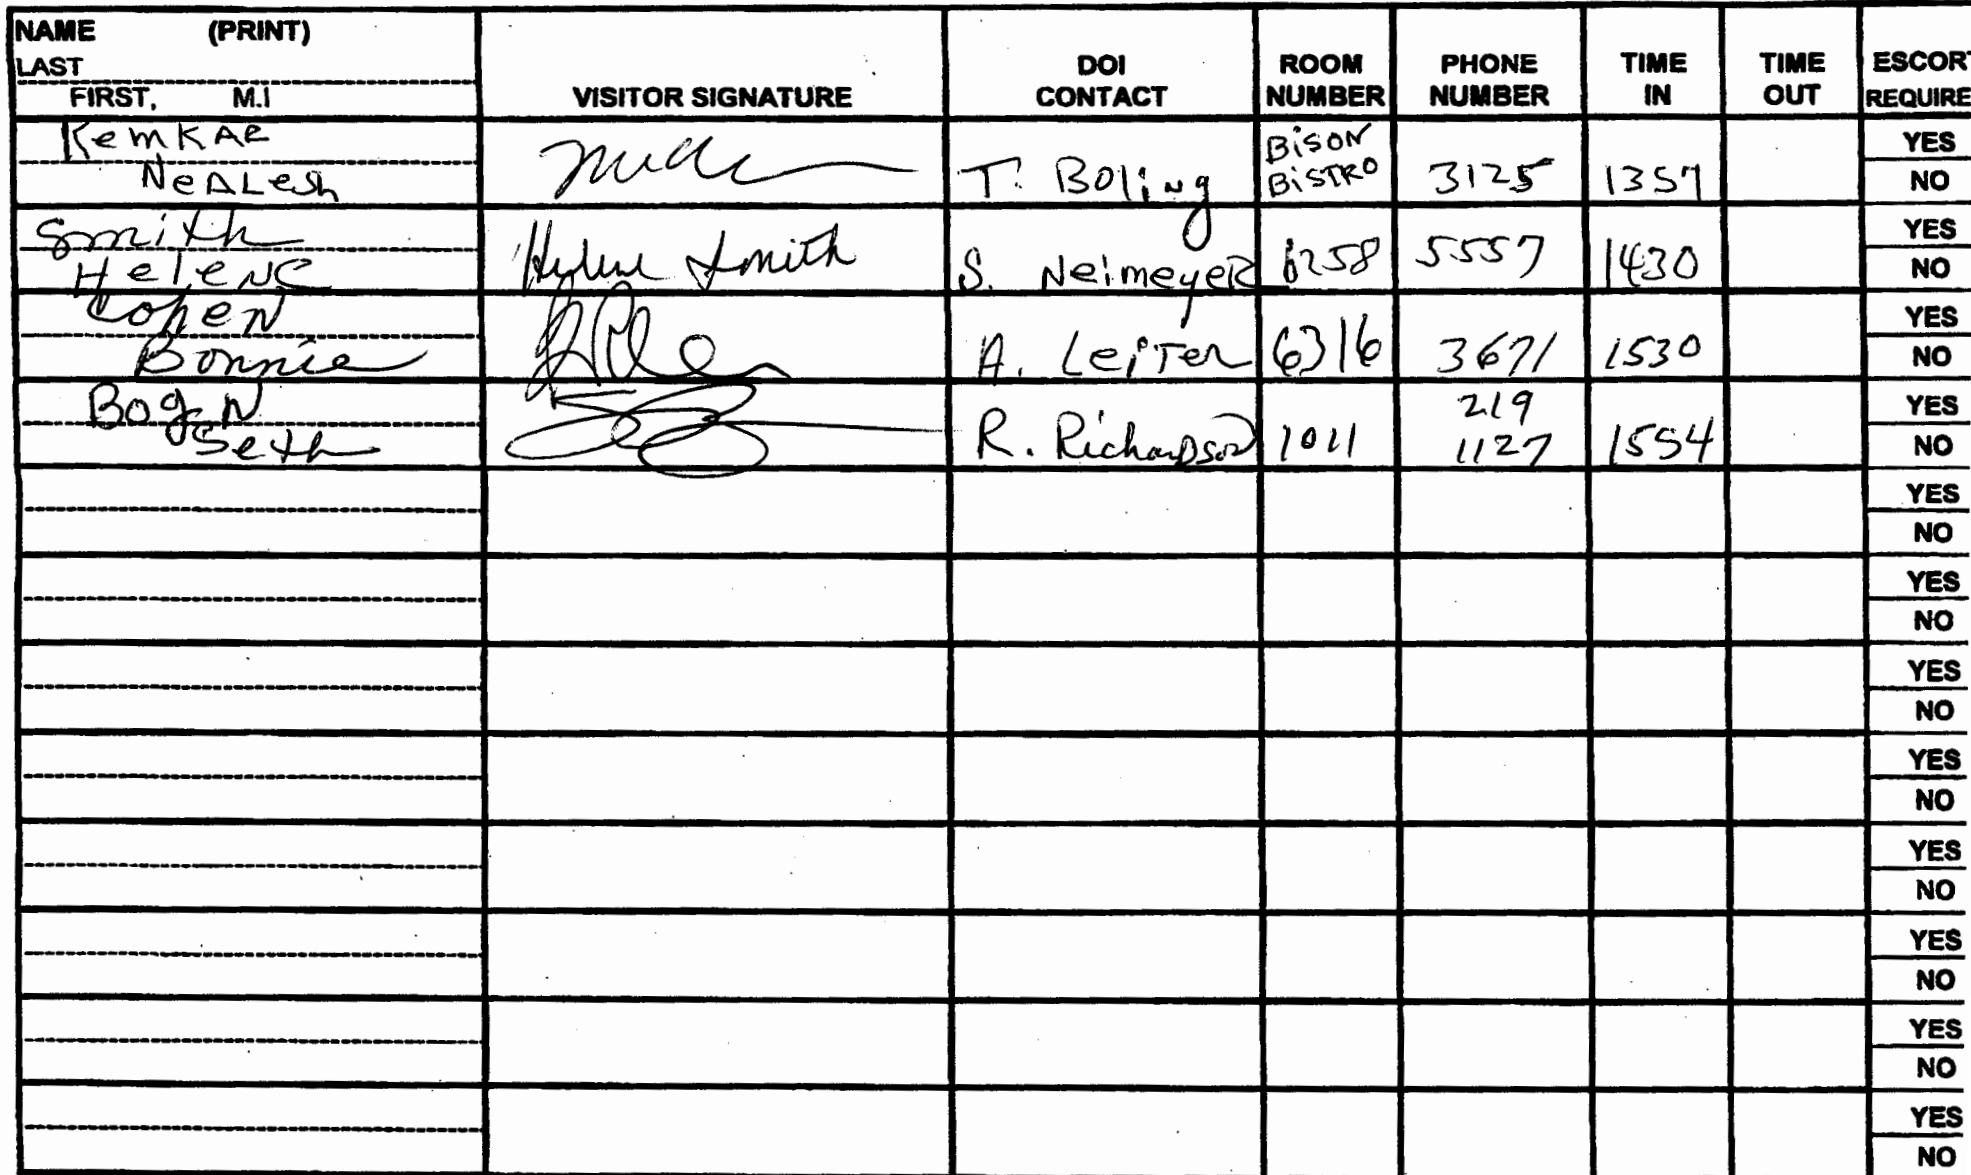 NAME (PRINT)
LAST
FIRST, M.I
VISITOR SIGNATURE
DOI CONTACT
ROOM NUMBER
PHONE NUMBER
TIME IN
TIME OUT
ESCORT REQUIRE
KemKAR
NeALesh
T. Boling
BISON BISTRO
3125
1357
YES
NO
Smith
Helene
Helene Smith
S. NeimeyeR
6258
5557
1430
YES
NO
Cohen
Bonnie
A. LeiTer
6316
3671
1530
YES
NO
Seth
R. Richardson
1011
219 1127
1554
YES
NO
YES
NO
YES
NO
YES
NO
YES
NO
YES
NO
YES
NO
YES
NO
YES
NO